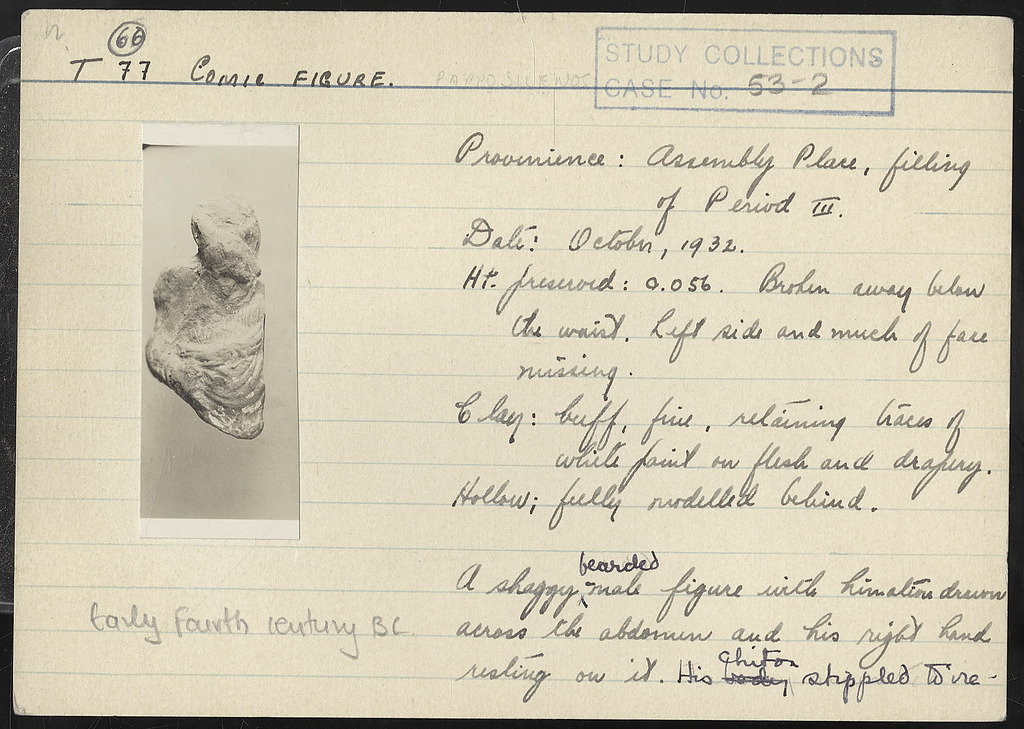 66
T 77 COMIC FIGURE. PAPPOSILENOS
STUDY COLLECTIONS
CASE No. 53-2
Provenience: Assembly Place, filling
of Period III.
Date: October, 1932.
Ht. preserved: 0.056. Broken away below
the waist. Left side and much of face
missing.
Clay: buff, fine, retaining traces of
white paint on flesh and drapery.
Hollow; fully modelled behind.
bearded
A shaggy, male figure with himation drawn
across the abdomen and his right hand
chiton
resting on it. His body stippled to re-
Early Fourth century BC